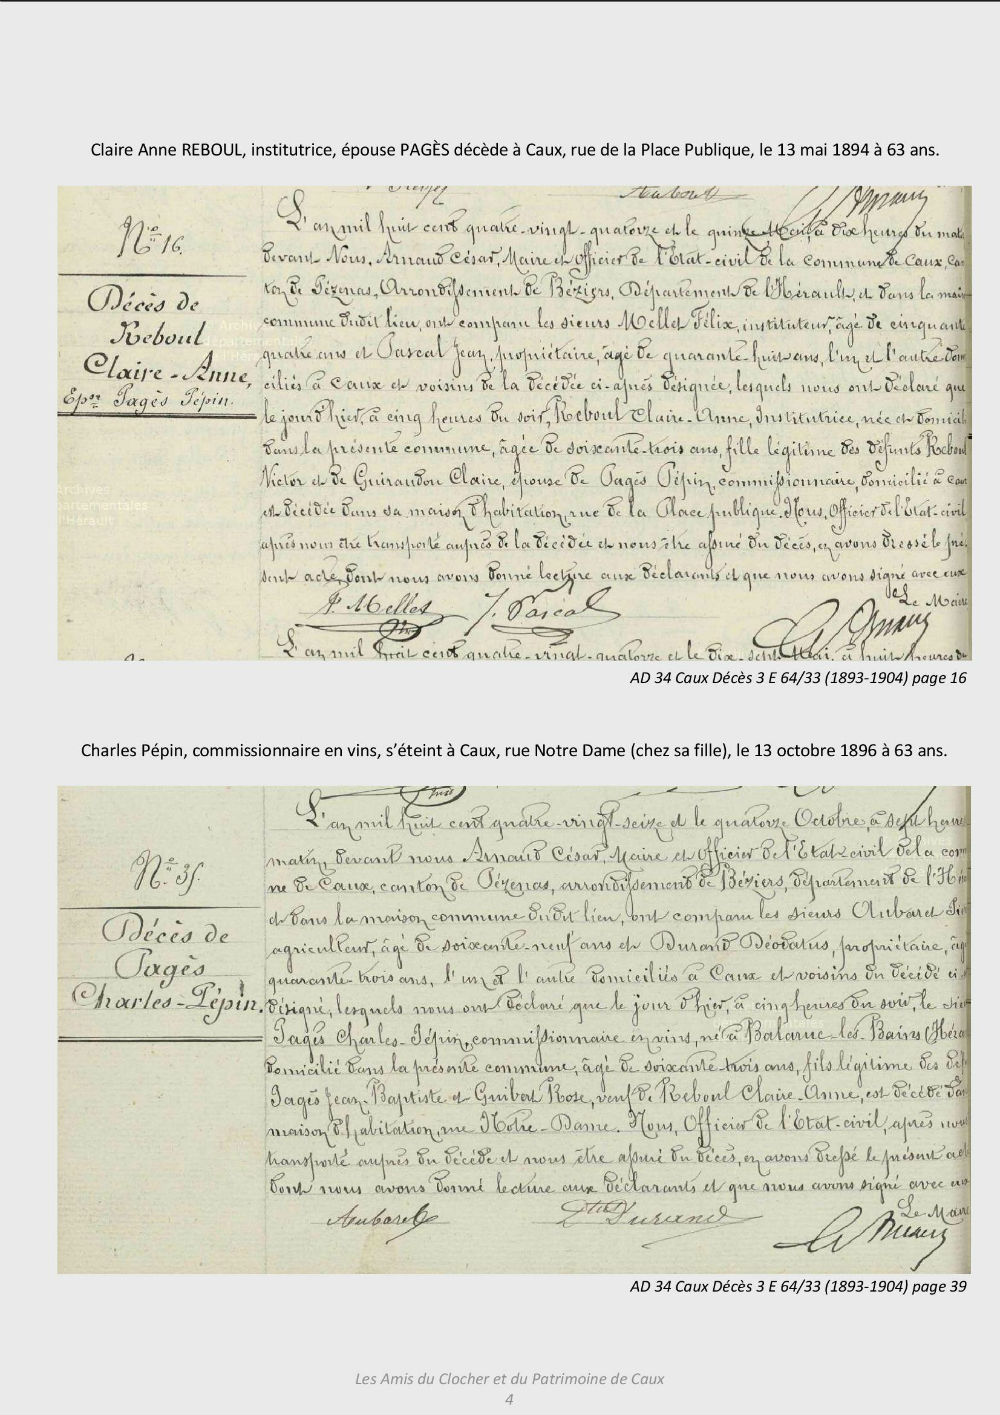 Claire Anne REBOUL, institutrice, épouse PAGÈS décède à Caux, rue de la Place Publique, le 13 mai 1894 à 63 ans.
N° 16.
Décès de
Reboul
Claire-Anne,
Epse Pagès Pépin.
Archives
départementales
de l'Hérault
L'an mil huit cent quatre-vingt-quatorze et le quinze Mai, à dix heures du mat
devant Nous, Arnaud César, Maire et Officier de l'Etat-civil de la commune de Caux, can
ton de Pézenas, Arrondissement de Béziers, Département de l'Hérault, et dans la maison
commune dudit lieu, ont comparu les sieurs Mellet Félix, instituteur, âgé de cinquante
quatre ans et Pascal Jean, propriétaire, âgé de quarante-huit ans, l'un et l'autre dom
ciliés à Caux et voisins de la décédée ci-après désignée, lesquels nous ont déclaré que
le jour d'hier, à cinq heures du soir, Reboul Claire-Anne, Institutrice, née et domicili
dans la présente commune, âgée de soixante-trois ans, fille légitime des défunts Reboul
Victor et de Guiraudou Claire, épouse de Pagès Pépin, commissionnaire, domicilié à Cau
est décédée dans sa maison d'habitation, rue de la Place publique. Nous, Officier de l'Etat-civil
après nous être transporté auprès de la décédée et nous être assuré du décès, en avons dressé le pré
sent acte, dont nous avons donné lecture aux déclarants et que nous avons signé avec eux
Le Maire
F. Mellet J. Pascal
L'an mil huit cent quatre-vingt-quatorze et le dix-sept Mai, à huit heures du
AD 34 Caux Décès 3 E 64/33 (1893-1904) page 16
Charles Pépin, commissionnaire en vins, s'éteint à Caux, rue Notre Dame (chez sa fille), le 13 octobre 1896 à 63 ans.
N° 35.
Décès de
Pagès
Charles-Pépin.
L'an mil huit cent quatre-vingt-seize et le quatorze Octobre, à sept heures
matin, devant nous Arnaud César, Maire et Officier de l'Etat-civil de la com
ne de Caux, canton de Pézenas, arrondissement de Béziers, département de l'Hér
et dans la maison commune dudit lieu, ont comparu les sieurs Aubaret
agriculteur, âgé de soixante-neuf ans et Durand Déodatus, propriétaire, âgé
quarante-trois ans, l'un et l'autre domiciliés à Caux et voisins du décédé ci
désigné, lesquels nous ont déclaré que le jour d'hier, à cinq heures du soir, le sieur
Pagès Charles-Pépin, commissionnaire en vins, né à Balaruc-les-Bains (Héra
domicilié dans la présente commune, âgé de soixante-trois ans, fils légitime des déf
Pagès Jean-Baptiste et Guibert Rose, veuf de Reboul Claire-Anne, est décédé dans
maison d'habitation, rue Notre-Dame. Nous, Officier de l'Etat-civil, après nous
transporté auprès du décédé et nous être assuré du décès, en avons dressé le présent acte
dont nous avons donné lecture aux déclarants et que nous avons signé avec eux
Le Maire
Aubaret Durand
AD 34 Caux Décès 3 E 64/33 (1893-1904) page 39
Les Amis du Clocher et du Patrimoine de Caux
4